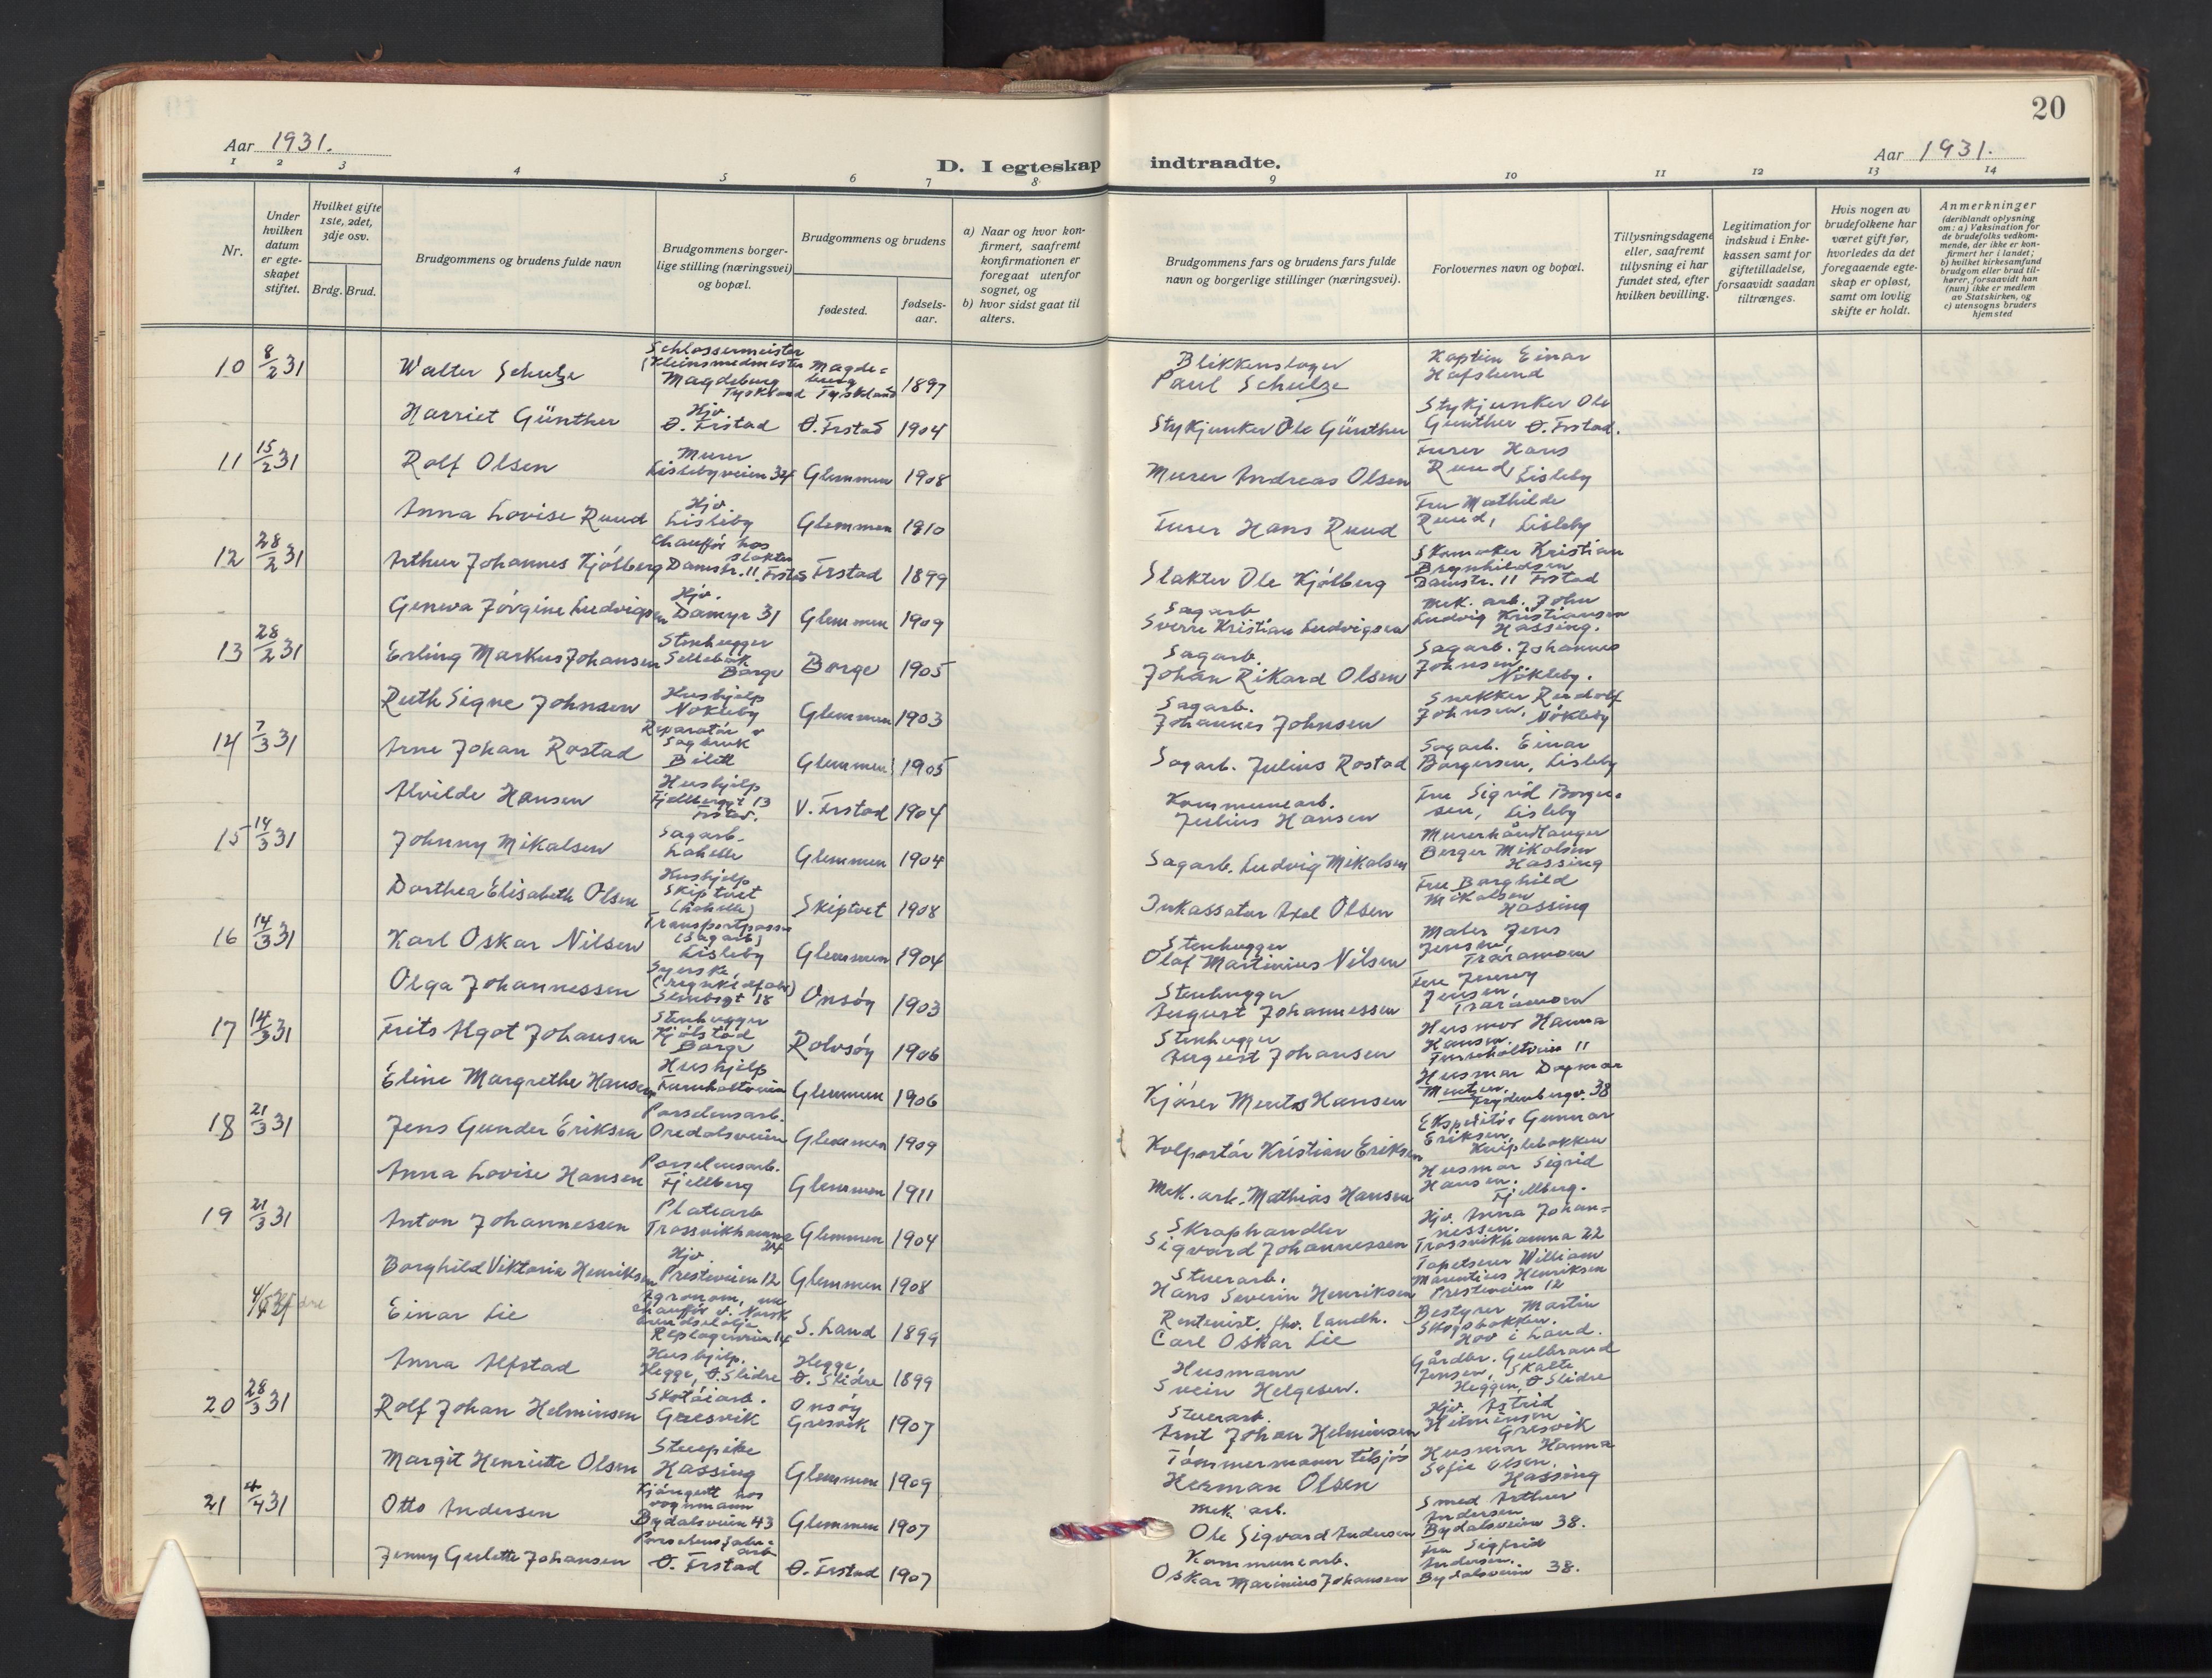 20
Aar 1931.
D. I egteskap indtraadte.
Aar 1931.
1 2 3 4 5 6 7 8 9 10 11 12 13 14
Nr.
Under hvilken datum er egteskapet stiftet.
Hvilket gifte 1ste, 2det, 3dje osv.
Brdg. Brud.
Brudgommens og brudens fulde navn
Brudgommens borgerlige stilling (næringsvei) og bopæl.
Brudgommens og brudens
fødested.
fødselsaar.
a) Naar og hvor konfirmert, saafremt konfirmationen er foregaat utenfor sognet, og
b) hvor sidst gaat til alters.
Brudgommens fars og brudens fars fulde navn og borgerlige stillinger (næringsvei).
Forlovernes navn og bopæl.
Tillysningsdagene eller, saafremt tillysning ei har fundet sted, efter hvilken bevilling.
Legitimation for indskud i Enkekassen samt for giftetilladelse, forsaavidt saadan tiltrænges.
Hvis nogen av brudefolkene har været gift før, hvorledes da det foregaaende egteskap er opløst, samt om lovlig skifte er holdt.
Anmerkninger (deriblandt oplysning om: a) Vaksination for de brudefolks vedkommende, der ikke er konfirmert her i landet; b) hvilket kirkesamfund brudgom eller brud tilhører, forsaavidt han (hun) ikke er medlem av Statskirken, og c) utensogns bruders hjemsted
10 8/2 31 Walter Schulze Schlossermeister (Kleinsmedmester Magdeburg Tyskland Magdeburg Tyskland 1897 Blikkenslager Paul Schulze Kaptein Einar Hafslund
Harriet Günther Hjv. Ø. Frstad Ø. Frstad 1904 Stykjunker Ole Günther Stykjunker Ole Günther Ø. Frstad.
11 15/2 31 Rolf Olsen Murer Lislebyveien 34 Glemmen 1908 Murer Andreas Olsen Furer Hans Ruud, Lisleby
Anna Lovise Ruud Hjv. Lisleby Glemmen 1910 Furer Hans Ruud Fru Mathilde Ruud, Lisleby
12 28/2 31 Arthur Johannes Kjölberg Chaufför hos slakter Damstr. 11. Frstad Frstad 1899 Slakter Ole Kjölberg Skomaker Kristian Brynhildsen Damstr. 11 Frstad
Geneva Jörgine Ludvigsen Hjv. Damyr 31 Glemmen 1909 Sagarb. Sverre Kristian Ludvigsen Mek. arb. John Ludvig Kristiansen Hassing.
13 28/2 31 Erling Markus Johansen Stenhugger Sellebak Borge Borge 1905 Sagarb. Johan Rikard Olsen Sagarb. Johannes Johnsen Nökleby.
Ruth Signe Johnsen Hushjelp Nökleby Glemmen 1903 Sagarb. Johannes Johnsen Snekker Rudolf Johnsen, Nökleby
14 7/3 31 Arne Johan Rostad Reparatör v Sagbruk Bilett Glemmen 1905 Sagarb. Julius Rostad Sagarb. Einar Borgersen, Lisleby
Alvilde Hansen Hushjelp Fjellberggt 13 Frstad. V. Frstad 1904 Kommunearb. Julius Hansen Fru Sigrid Borgersen, Lisleby
15 14/3 31 Johnny Mikalsen Sagarb. Lahelle Glemmen 1904 Sagarb. Ludvig Mikalsen Murerhåndlanger Berger Mikalsen Hassing
Dorthea Elisabeth Olsen Hushjelp Skiptvet (Lahelle) Skiptvet 1908 Inkassator Axel Olsen Fru Borghild Mikalsen Hassing
16 14/3 31 Karl Oskar Nilsen (Sagarb) Lisleby Glemmen 1904 Stenhugger Olaf Martinius Nilsen Maler Jens Jensen, Traramoen
Olga Johannessen Syerske, 18 Onsöy 1903 Stenhugger August Johannessen Fru Jenny Jensen, Traramoen
17 14/3 31 Frits Agot Johansen Stenhugger Kjölstad Borge Rolvsöy 1906 Stenhugger August Johansen Husmor Hanna Hansen. Furuholtveien 11
Eline Margrethe Hansen Hushjelp Furuholtveien Glemmen 1906 Kjörer Mentz Hansen Husmor Dagmar Mentzen. Frydenbergv. 38
18 21/3 31 Jens Gunder Eriksen Porselensarb. Oredalsveien Glemmen 1909 Kolportör Kristian Eriksen Ekspeditör Gunnar Eriksen, Kniplebakken
Anna Lovise Hansen Porselensarb. Fjellberg Glemmen 1911 Mek. arb. Mathias Hansen Husmor Sigrid Hansen. Fjellberg.
19 21/3 31 Anton Johannessen Platearb Trossvikhavna 24 Glemmen 1904 Skraphandler Sigvard Johannessen Hjv. Anna Johannessen. Trossvikhamna 22
Borghild Viktoria Henriksen Hjv Presteveien 12 Glemmen 1908 Stuerarb. Hans Severin Henriksen Tapetserer William Marentius Henriksen Presteveien 12
Einar Lie Agronom, chaufför v. Norsk S. Land 1899 Rentenist. fhv. landh. Carl Oskar Lie Bestyrer Martin Skogsbakken. Hov i Land.
Anna Alfstad Hushjelp. Hegge, Ø. Slidre Hegge, Ø. Slidre 1899 Husmann Svein Helgesen. Gårdbr. Gulbrand Jensen, Skalte Heggen, Ø Slidre
20 28/3 31 Rolf Johan Helminsen Skotöiarb. Gresvik Onsöy Gresvik 1907 Stuerarb. Arnt Johan Helminsen Hjv. Astrid Helminsen Gresvik
Margit Henriette Olsen Stuepike Hassing Glemmen 1909 Tömmermann tilsjös Herman Olsen Husmor Hanna Sofie Olsen. Hassing
21 4/4 31 Otto Andersen Kjöregutt hos vognmann Bydalsveien 43 Glemmen 1907 Mek. arb. Ole Sigvard Andersen Smed Arthur Andersen Bydalsveien 38.
Jenny Gulette Johansen Ø. Frstad Ø. Frstad 1907 Kommunearb. Oskar Marinius Johansen Fru Sigfrid Andersen. Bydalsveien 38.